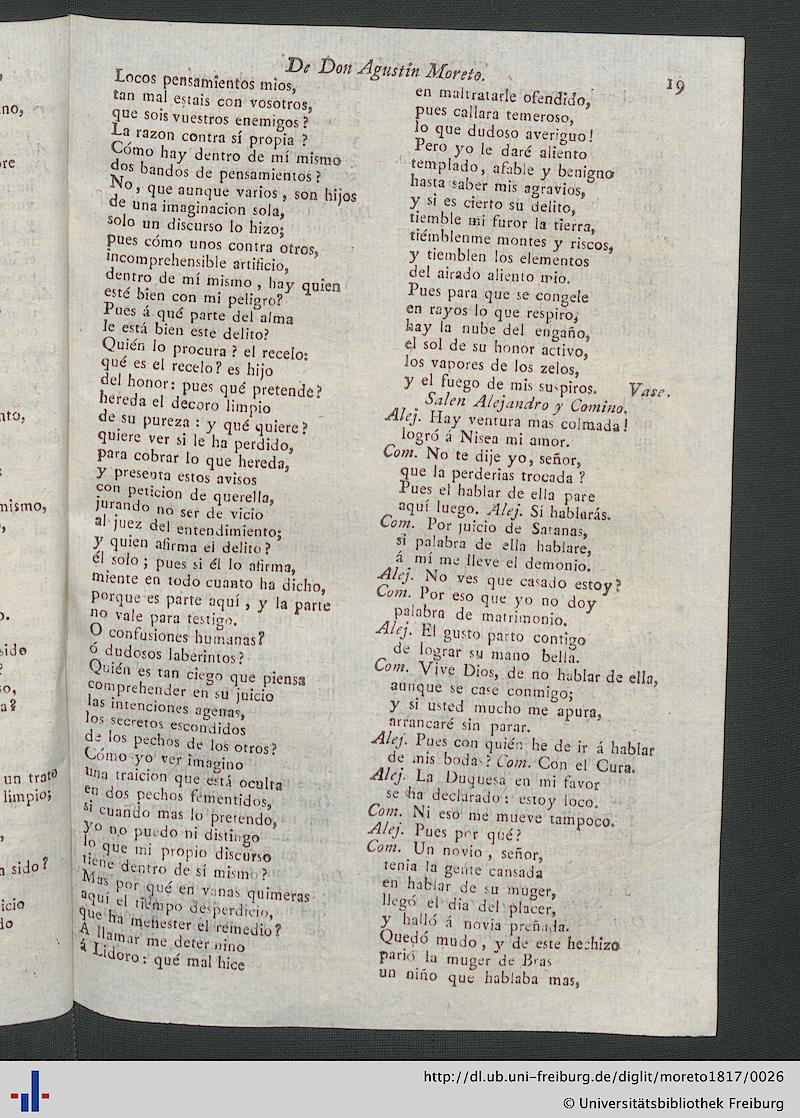 De Don Agustin Moreto.
19
Locos pensamientos mios,
tan mal estais con vosotros,
que sois vuestros enemigos?
La razon contra sí propia?
Cómo hay dentro de mí mismo
dos bandos de pensamientos?
No, que aunque varios, son hijos
de una imaginacion sola,
solo un discurso lo hizo;
pues cómo unos contra otros,
incomprehensible artificio,
dentro de mí mismo, hay quien
esté bien con mi peligro?
Pues á qué parte del alma
le está bien este delito?
Quién lo procura? el recelo:
qué es el recelo? es hijo
del honor: pues qué pretende?
hereda el decoro limpio
de su pureza: y qué quiere?
quiere ver si le ha perdido,
para cobrar lo que hereda,
y presenta estos avisos
con peticion de querella,
jurando no ser de vicio
al juez del entendimiento;
y quien afirma el delito?
él solo; pues si él lo afirma,
miente en todo cuanto ha dicho,
porque es parte aquí, y la parte
no vale para testigo.
O confusiones humanas?
ó dudosos laberintos?
Quién es tan ciego que piensa
comprehender en su juicio
las intenciones agenas,
los secretos escondidos
de los pechos de los otros?
Cómo yo ver imagino
una traicion que está oculta
en dos pechos fementidos,
si cuando mas lo pretendo,
yo no puedo ni distingo
lo que mi propio discurso
tiene dentro de sí mismo?
Mas por qué en vanas quimeras
aquí el tiempo desperdicio,
que ha menester el remedio?
A llamar me determino
á Lidoro: qué mal hice
en maltratarle ofendido,
pues callara temeroso,
lo que dudoso averiguo!
Pero yo le daré aliento
templado, afable y benigno
hasta saber mis agravios,
y si es cierto su delito,
tiemble mi furor la tierra,
tiémblenme montes y riscos,
y tiemblen los elementos
del airado aliento mio.
Pues para que se congele
en rayos lo que respiro,
hay la nube del engaño,
el sol de su honor activo,
los vapores de los zelos,
y el fuego de mis suspiros. Vase.
Salen Alejandro y Comino.
Alej. Hay ventura mas colmada!
logró á Nisea mi amor.
Com. No te dije yo, señor,
que la perderias trocada?
Pues el hablar de ella pare
aquí luego. Alej. Sí hablarás.
Com. Por juicio de Satanas,
si palabra de ella hablare,
á mí me lleve el demonio.
Alej. No ves que casado estoy?
Com. Por eso que yo no doy
palabra de matrimonio.
Alej. El gusto parto contigo
de lograr su mano bella.
Com. Vive Dios, de no hablar de ella,
aunque se case conmigo;
y si usted mucho me apura,
arrancaré sin parar.
Alej. Pues con quién he de ir á hablar
de mis bodas? Com. Con el Cura.
Alej. La Duquesa en mi favor
se ha declarado: estoy loco.
Com. Ni eso me mueve tampoco.
Alej. Pues por qué?
Com. Un novio, señor,
tenia la gente cansada
en hablar de su muger,
llegó el dia del placer,
y halló á novia preñada.
Quedó mudo, y de este hechizo
parió la muger de Bras
un niño que hablaba mas,
no,
re
nto,
mismo,
o.
sido
?
so,
a?
un trato
limpio;
sido?
icio
do
http://dl.ub.uni-freiburg.de/diglit/moreto1817/0026
© Universitätsbibliothek Freiburg